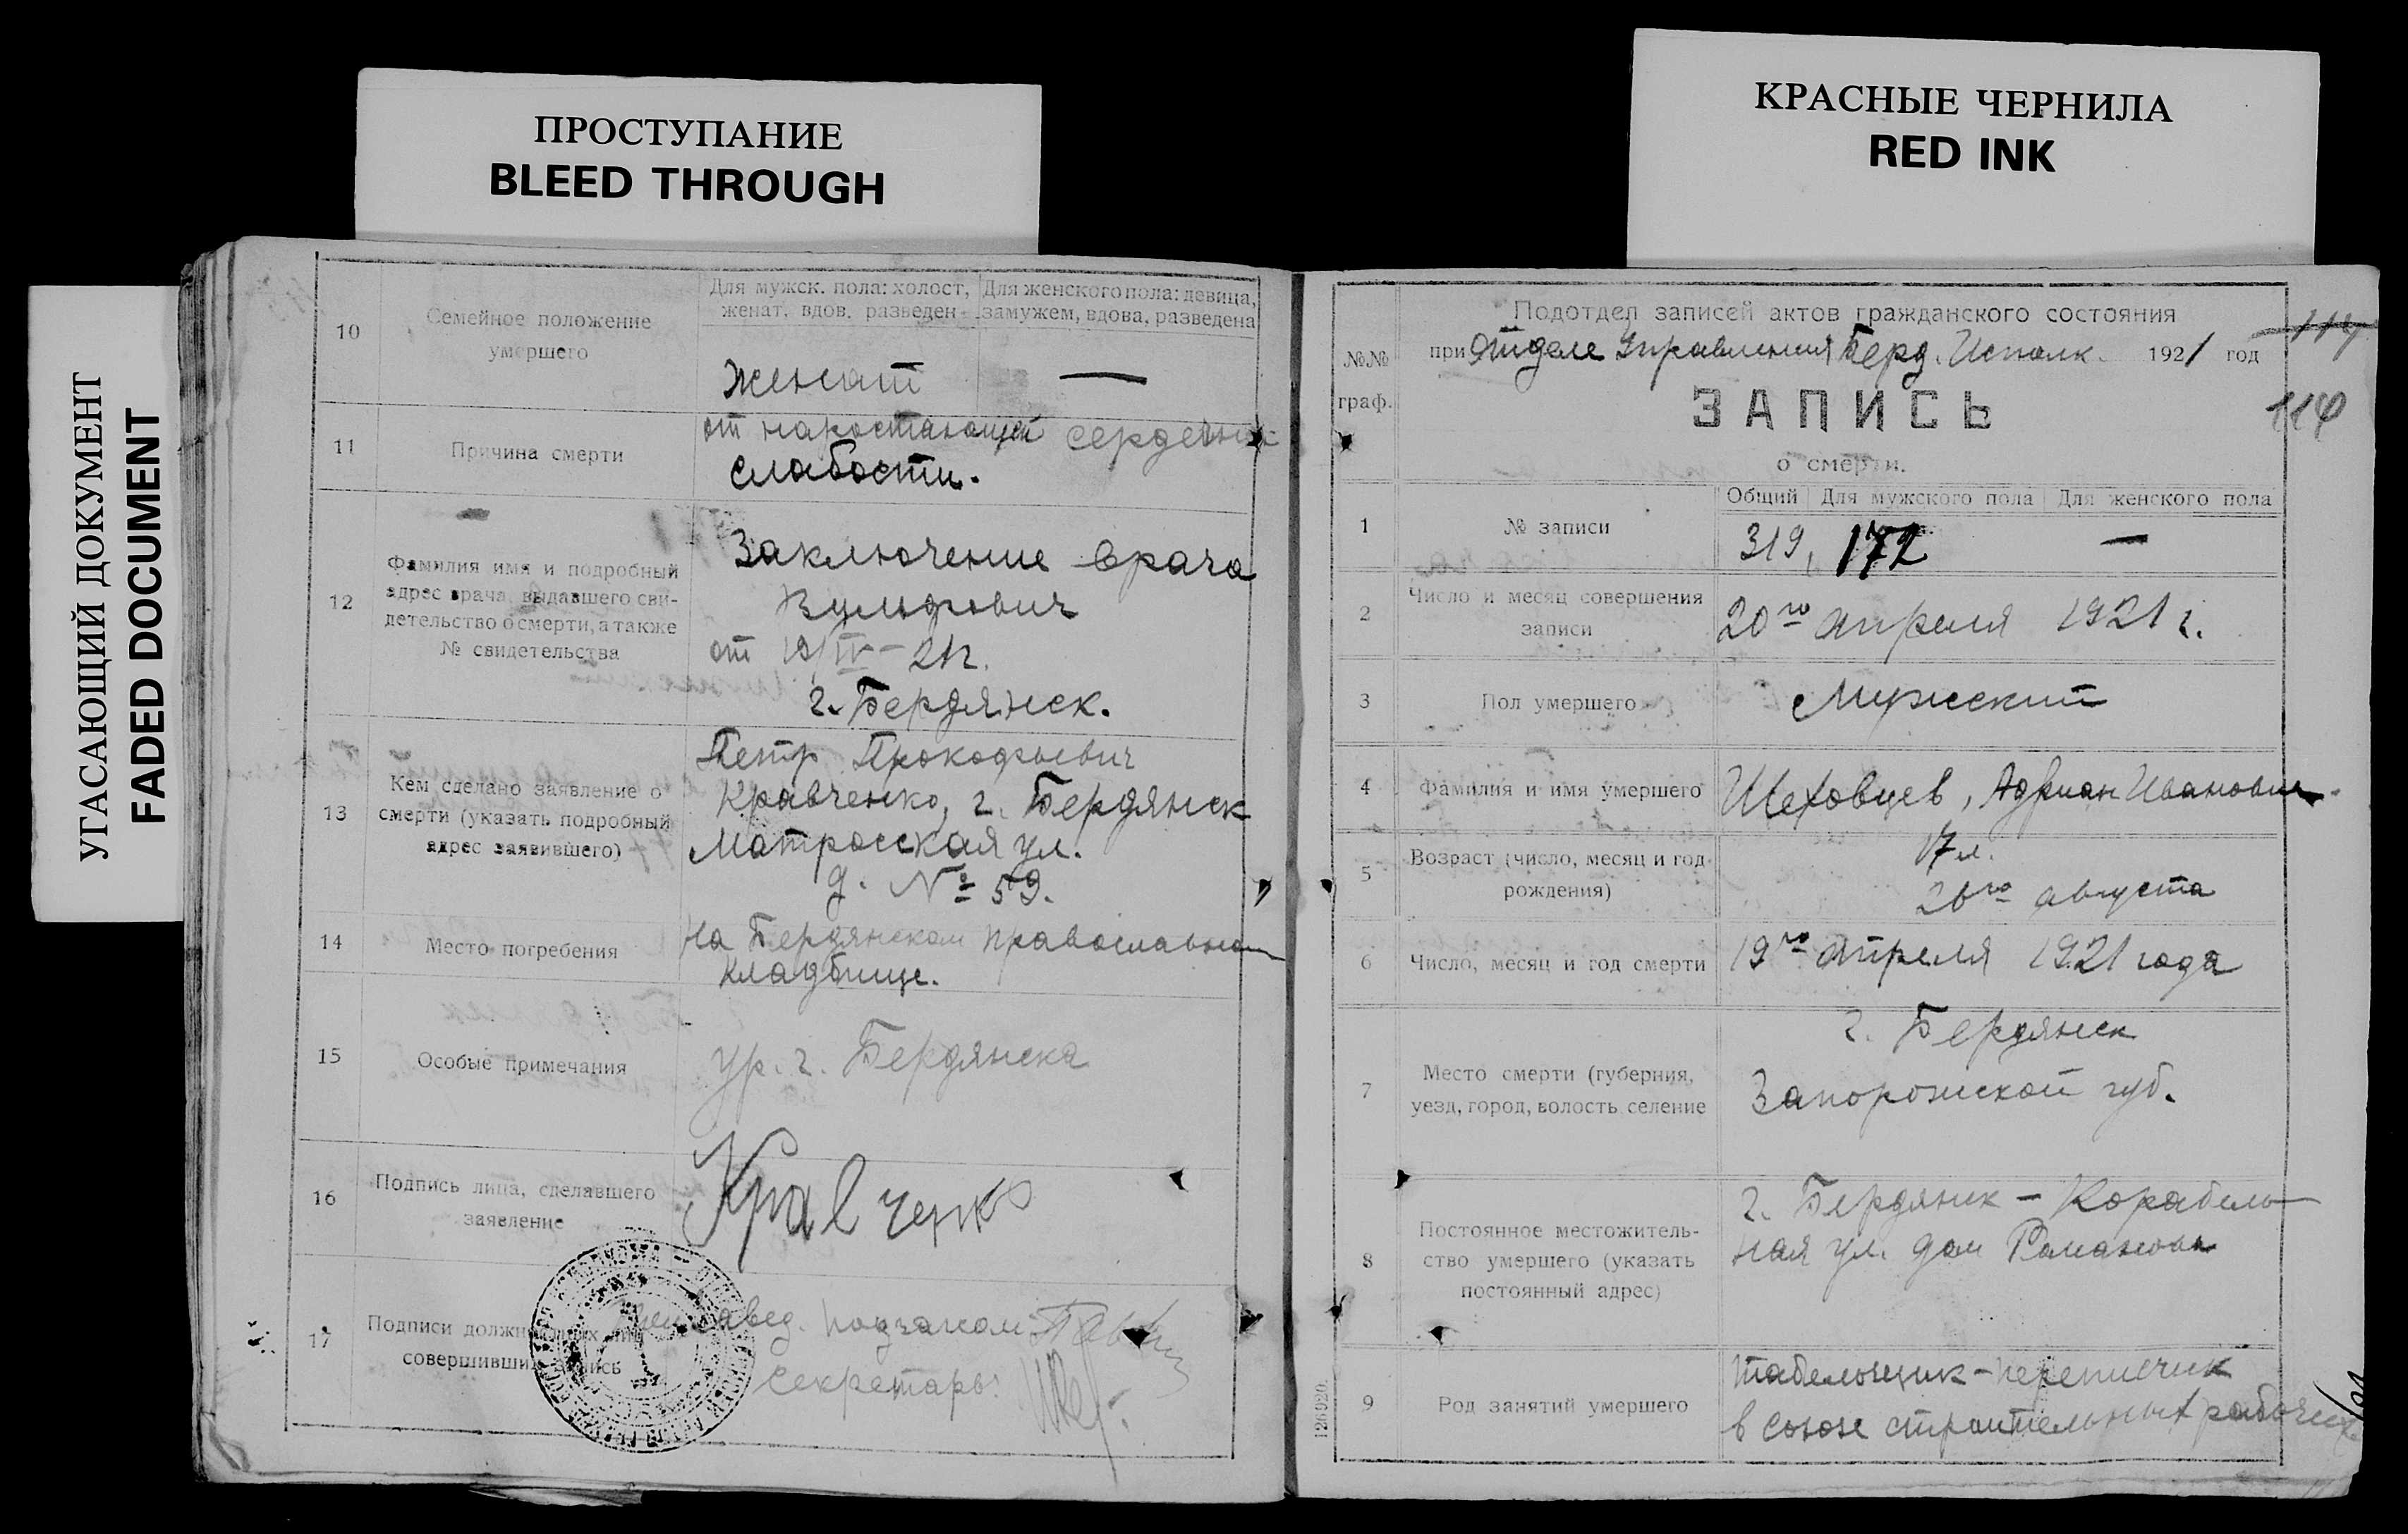 ПРОСТУПАНИЕ
BLEED THROUGH
КРАСНЫЕ ЧЕРНИЛА
RED INK
УГАСАЮЩИЙ ДОКУМЕНТ
FADED DOCUMENT
10
Семейное положение
умершего
Для мужск. пола: холост,
женат, вдов. разведен
Для женского пола: девица,
замужем, вдова, разведена
Женат
—
11
Причина смерти
от наростающей сердечной
слабости.
12
Фамилия имя и подробный
адрес врача, выдавшего сви-
детельство о смерти, а также
№ свидетельства
Заключение врача
Вульфович
от 19/IV – 21г.
г. Бердянск.
13
Кем сделано заявление о
смерти (указать подробный
адрес заявившего)
Петр Прокофьевич
Кравченко, г. Бердянск
Матросская ул.
д. № 59.
14
Место погребения
На Бердянском православном
кладбище.
15
Особые примечания
ур. г. Бердянска
16
Подпись лица, сделавшего
заявление
Кравченко
17
Подписи должностных лиц
совершивших запись
завед. подзагсом
Секретарь:
№№
граф.
Подотдел записей актов гражданского состояния
при Отделе Управления Берд. Исполк. 1921 год
114
114
ЗАПИСЬ
о смерти.
1
№ записи
Общий
Для мужского пола
Для женского пола
319, 172 —
2
Число и месяц совершения
записи
20го апреля 1921 г.
3
Пол умершего
Мужской
4
Фамилия и имя умершего
Шеховцев, Адриан Иванович
5
Возраст (число, месяц и год
рождения)
17 л.
26го августа
6
Число, месяц и год смерти
19го апреля 1921 года
7
Место смерти (губерния,
уезд, город, волость, селение
г. Бердянск
Запорожской губ.
8
Постоянное местожитель-
ство умершего (указать
постоянный адрес)
г. Бердянск – Корабель-
ная ул. дом Романова
9
Род занятий умершего
табельщик – переписчик
в союзе строительных рабочих
126020.